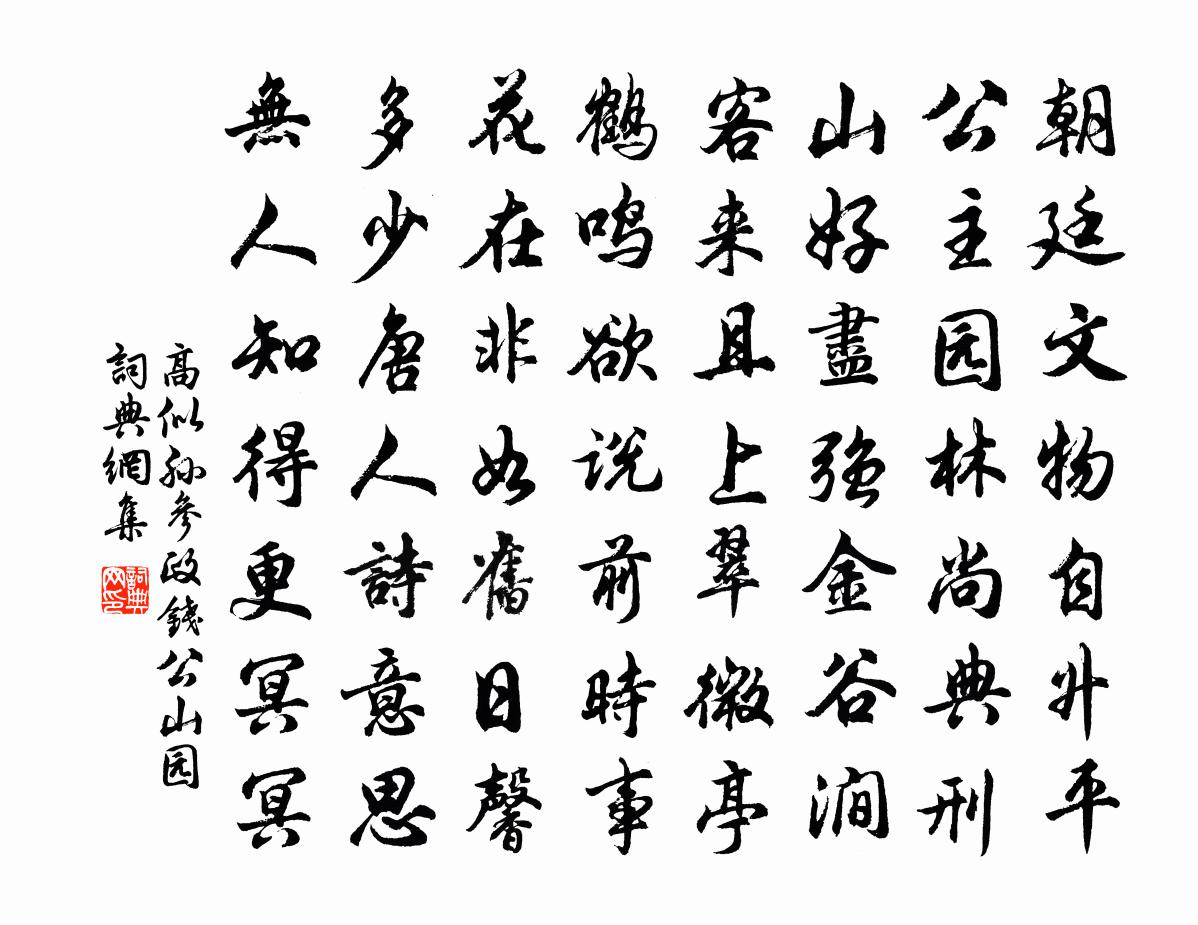 朝廷文物自升平
公主园林尚典刑
山好盡强金谷澗
客来且上翠微亭
鶴鸣欲说前時事
花在非如舊日馨
多少唐人詩意思
無人知得更冥冥
高似孙參政錢公山园
詞典網集
詞典网印